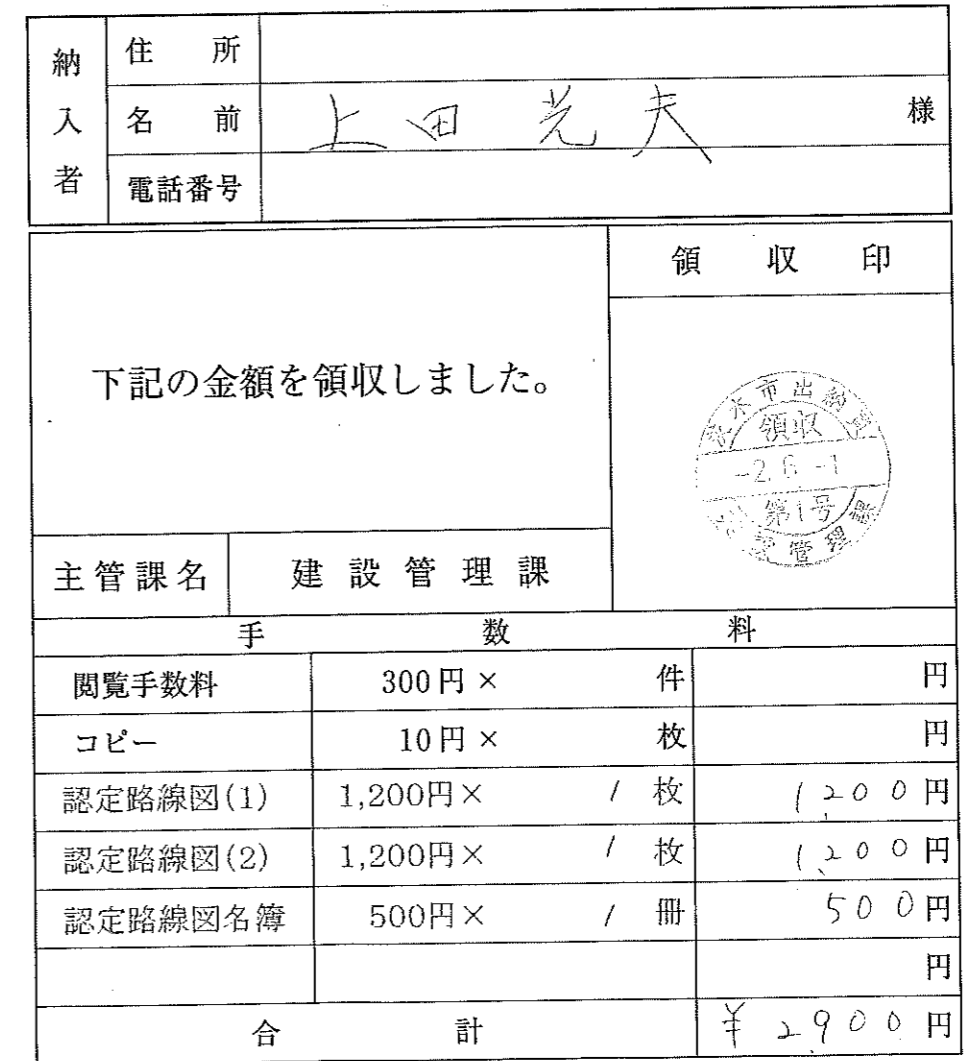 納入者
住所
名前 上田光夫 様
電話番号
領収印
下記の金額を領収しました。
茨木市出納員
領収
-2.6.-1
第1号
建設管理課
主管課名 建設管理課
手数料
閲覧手数料 300円× 件 円
コピー 10円× 枚 円
認定路線図(1) 1,200円× 1 枚 1,200円
認定路線図(2) 1,200円× 1 枚 1,200円
認定路線図名簿 500円× 1 冊 500円
円
合計 ¥2,900円